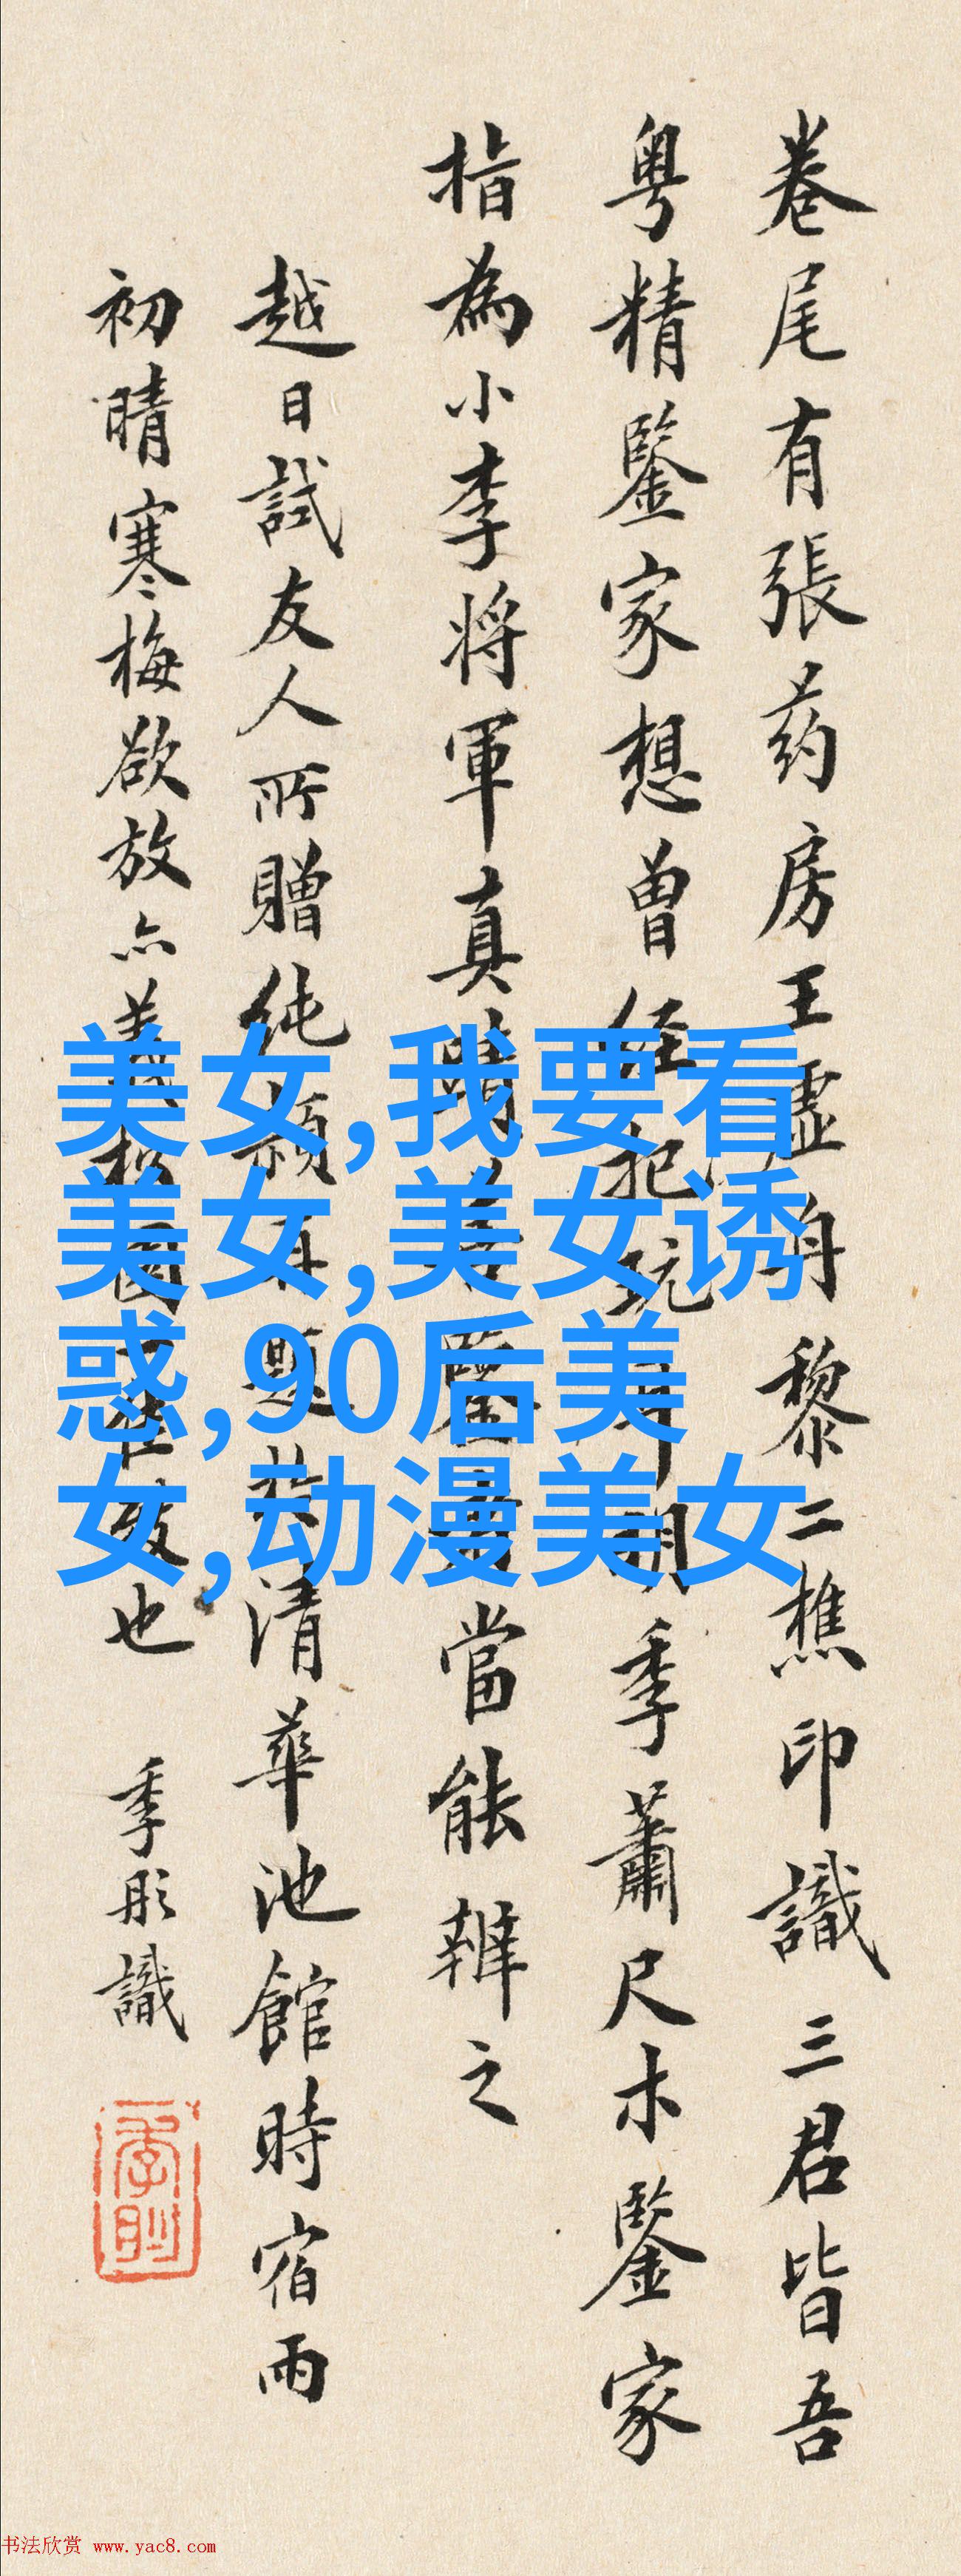 卷尾有張药房王虛舟黎二樵印識三君皆吾
粤精鑒家想曾經把玩 明季蕭尺木鑒家
指為小李將軍真 鑒 當能辨之
越日試友人所贈純 穎 題 清華池館時宿雨
初晴寒梅欲放亦 也
季彤識
美女,我要看
美女,美女诱
惑,90后美
女,动漫美女
书法欣赏 www.yac8.com